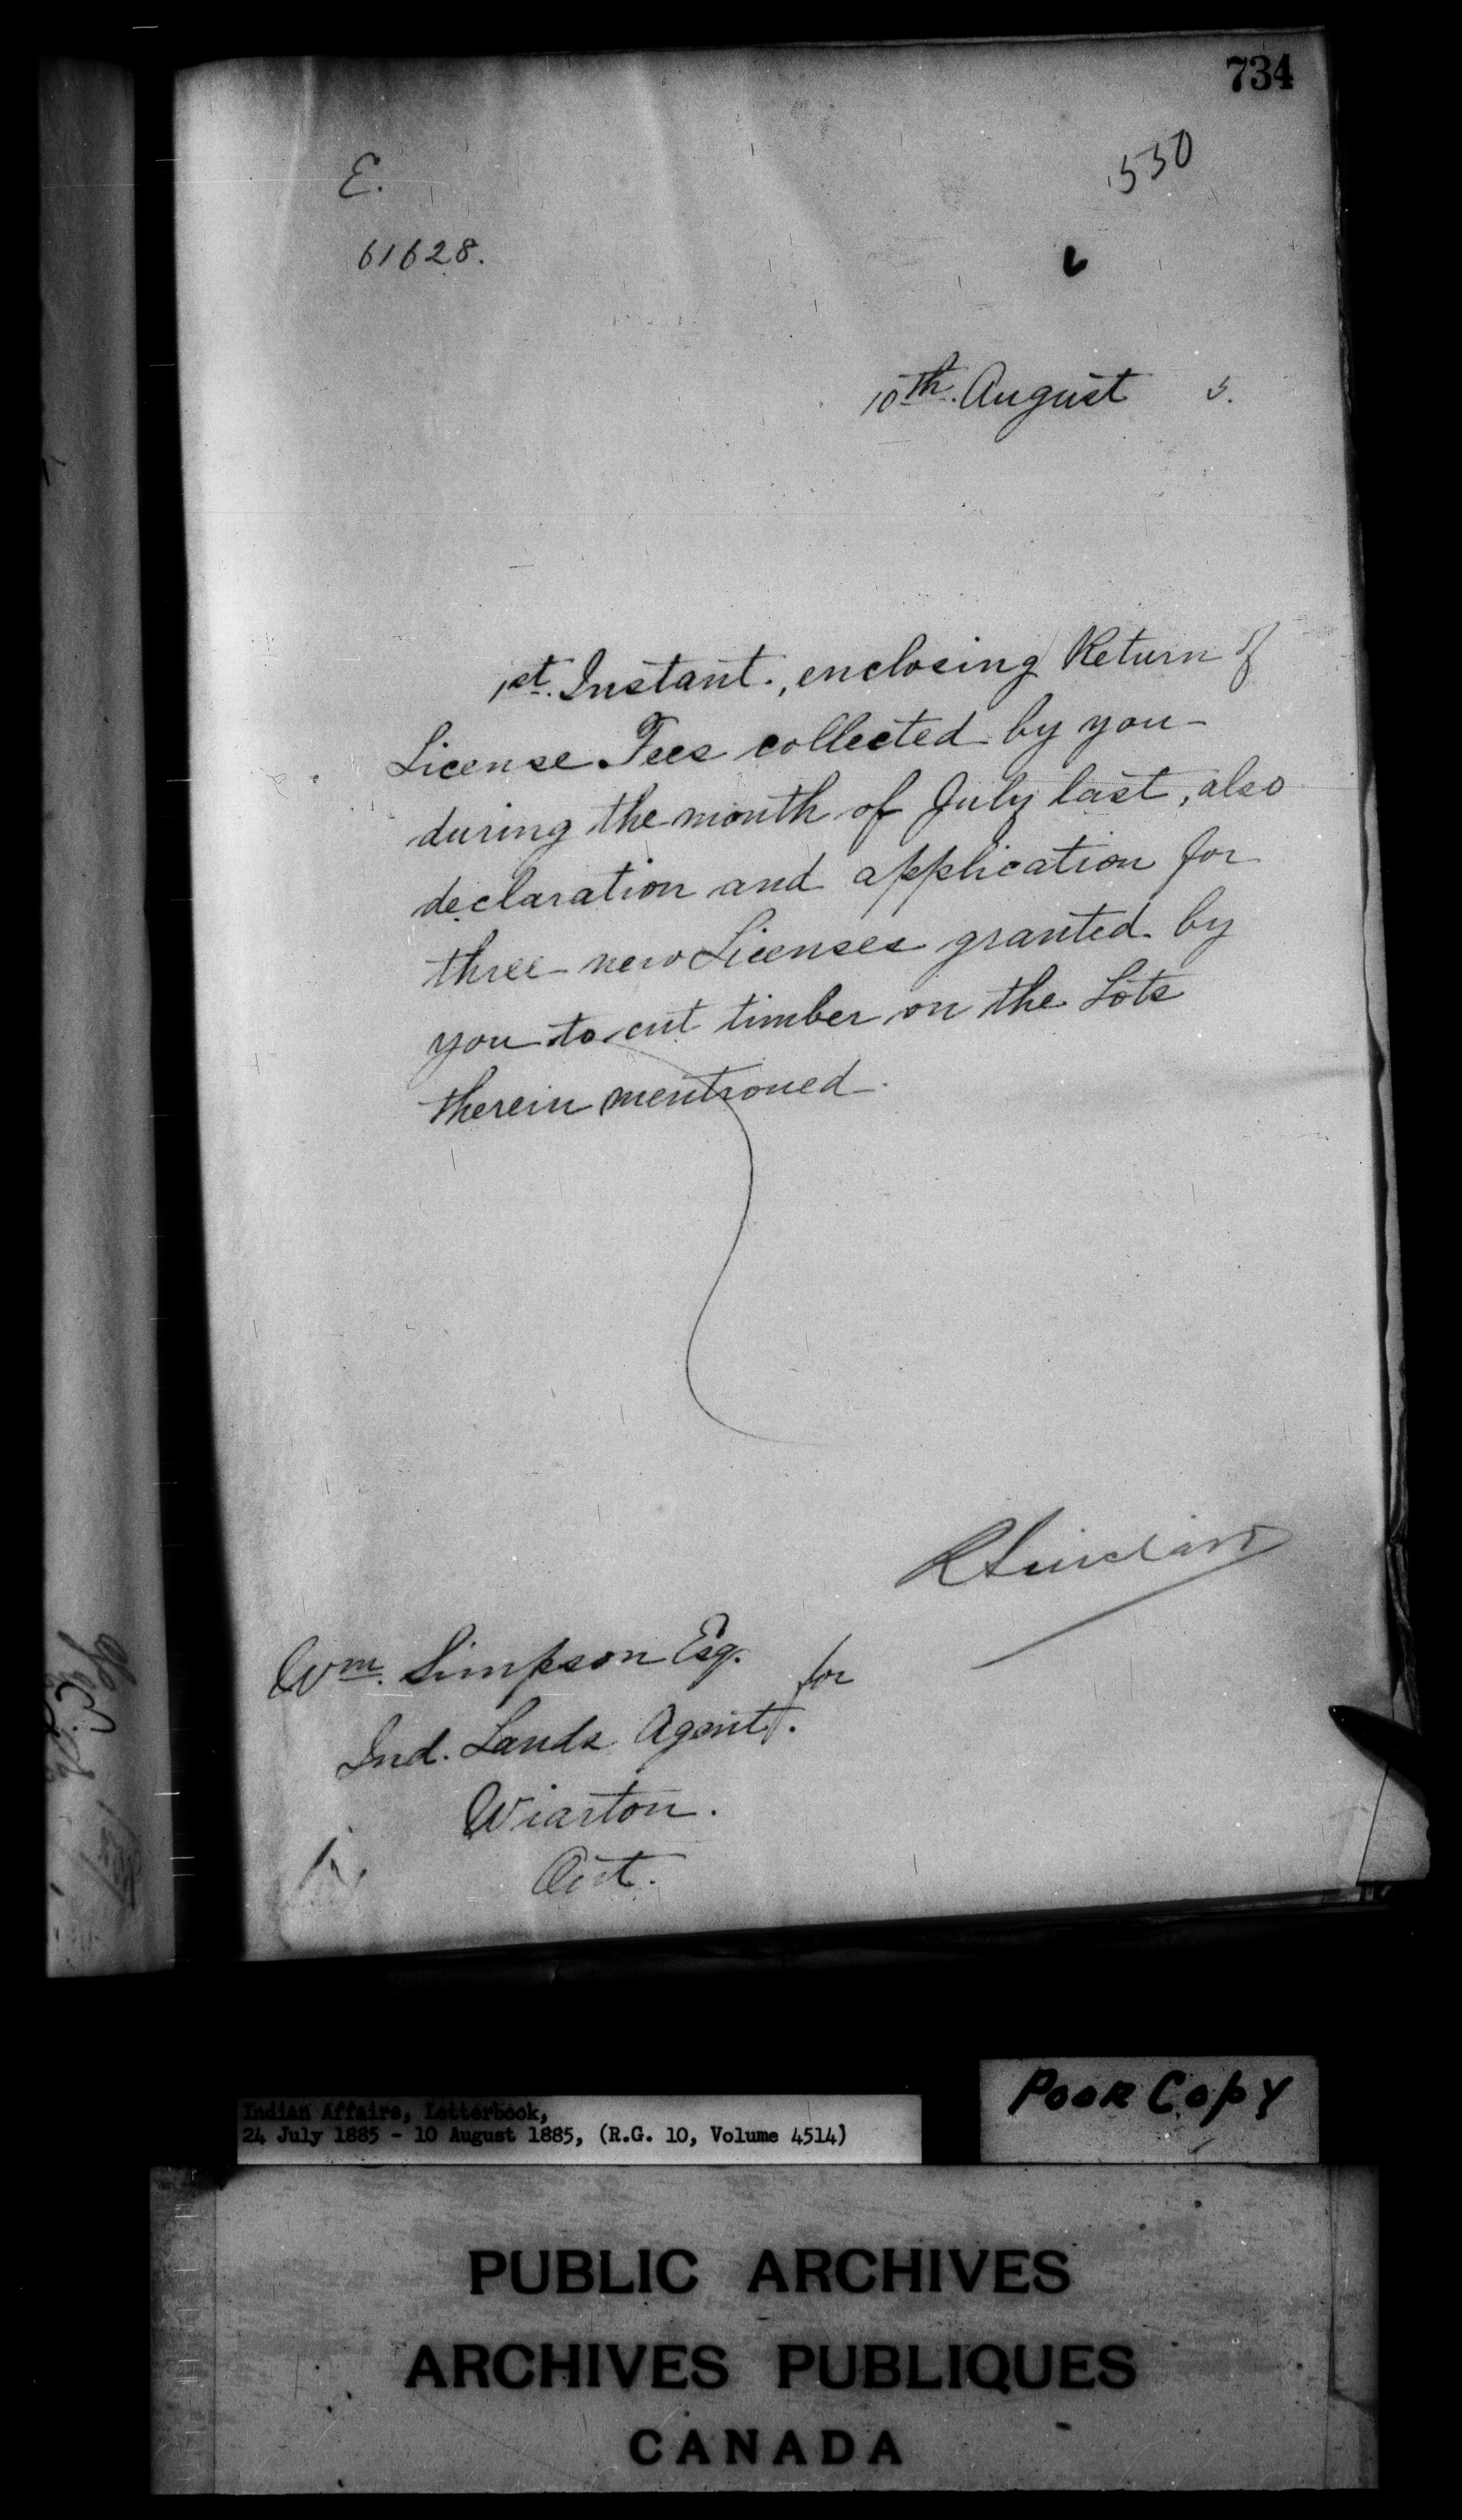 734
E.
530
61628.
10th. August 5.
1st. Instant., enclosing Return of
License Fees collected by you
during the month of July last, also
declaration and application for
three new Licenses granted by
you to cut timber on the Lots
therein mentioned.
R Sinclair
Wm. Simpson Esq. for
Ind. Lands Agent.
Wiarton.
Ont.
Poor Copy
Indian Affairs, Letterbook,
24 July 1885 - 10 August 1885, (R.G. 10, Volume 4514)
PUBLIC ARCHIVES
ARCHIVES PUBLIQUES
CANADA